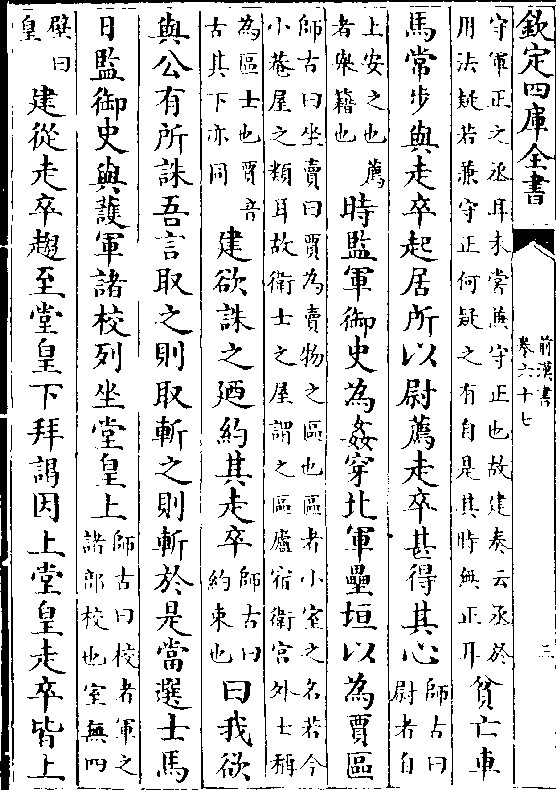 欽定四庫全書
前漢書
卷六十七
三
守軍正之丞耳未常兼守正也故建奏云丞於
用法疑若兼守正何疑之有自是其時無正耳
貧亡車
馬常步與走卒起居所以尉薦走卒甚得其心
師古曰
尉者自
上安之也薦
者舉籍也
時監軍御史為姦穿北軍壘垣以為賈區
師古曰坐賣曰賈為賣物之區也區者小室之名若今
小菴屋之類耳故衛士之屋謂之區廬宿衛宮外士稱
為區士也賈音
古其下亦同
建欲誅之廼約其走卒
師古曰
約束也
曰我欲
與公有所誅吾言取之則取斬之則斬於是當選士馬
日監御史與護軍諸校列坐堂皇上
師古曰校者軍之
諸部校也室無四
壁曰
皇
建從走卒趨至堂皇下拜謁因上堂皇走卒皆上